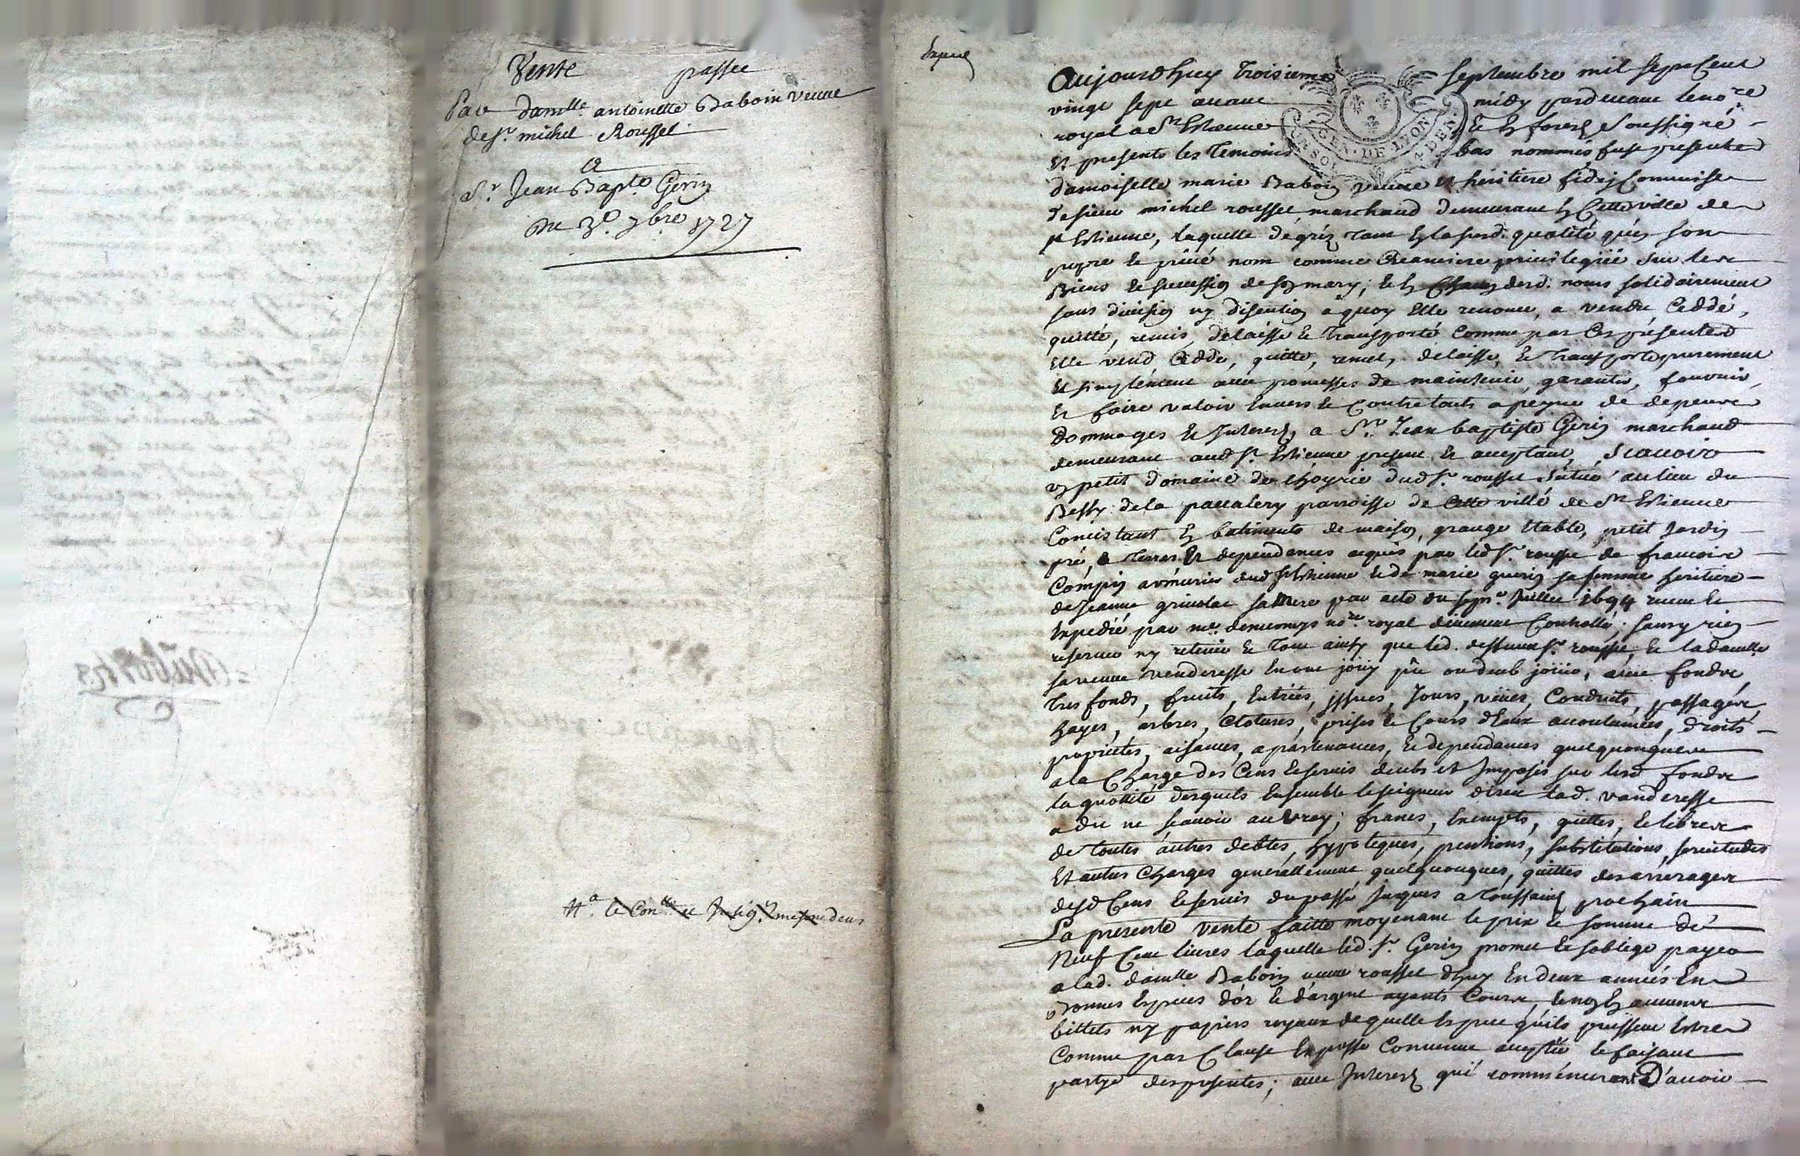 Vente passee
Par Damlle. antoinette Baboin veuve
de Sr. michel Roussel
a
Sr. Jean Bapte Gerin
Du 3e. 7bre 1727
Expedié
Aujourdhuy troisieme septembre mil sept cent
vingt sept avant midy pardevant le nore
royal a St Estienne en forest soussigné
et presents les temoins bas nommés fust presente
damoiselle marie Baboin veuve et héritiere fideicommise
de sieur michel roussel marchand demeurant en cette ville de
st Estienne, laquelle de gré, tant en lasusd. qualité qu'en son
propre et privé nom comme creanciere privilegiée sur les
Biens et succession de son mary; et en desd. noms solidairement
sans division ny discution a quoy elle renonce, a vendu Ceddé,
quitté, remis, delaissé et transporté comme par ces presentes
elle vend Cedde, quitte, remet, delaisse, et transporte purement
et simplement avec promesses de maintenir, garantir, fournir,
et faire valoir envers et contre touts a peyne de depens
dommages et Interests, a Sr. Jean baptiste Gerin marchand
demeurant aud st. Estienne present et acceptant, scavoir
un petit domaine de dud sr. roussel situé au lieu du
Bessy de la parroisse de cette ville de St Estienne
Concistant en batiments de maison, grange étable, petit jardin
pré, terres et dependances acquis par led sr. roussel de francois
Compin armurier dud st Estienne et de marie guerin sa femme heritiere
de Jeanne sa mere par acte du Juillet 1694 receu et
expedié par me. nore royal deuement controllé; sans y rien
reserver ny retenir et tout ainsy que led. deffunct sr. roussel, et la damlle
sa veuve venderesse en ont jouy pû ou deub jouir, avec fonds
tres fonds, fruits, entrées, issues, jours, veües, conduits, passages,
hayes, arbres, clotures, prises et cours d'eaux accoutumées, droits
proprietés, aisances, apartenances, et dependances quelquonques
a la Charge des Cens et servis deubs et imposés sur lesd fonds
la quottité desquels ensemble le seigneur direct lad. vanderesse
a dit ne scavoir au vray; francs, exempts, quittes, et libres
de toutes autres debtes, hypoteques, pentions, substitutions, servitudes
et autres charges generallement quelquonques, quittes des arrerages
desd Cens et servis du passé jusques a Toussaint prochain
La presente vente faitte moyenant le prix et somme de
Neuf Cent livres laquelle led. sr. Gerin promet et soblige payer
a lad. damlle Baboin veuve roussel dhuy en deux années en
bonnes especes d'or et d'argent ayants cours, et non en aucuns
billets ny papiers royaux de quelle espece qu'ils puissent estre
Comme par clause expresse convenue acceptée et faisant
partye des presentes; avec Interests qui commenceront D'avoir
GEN. DE LYON